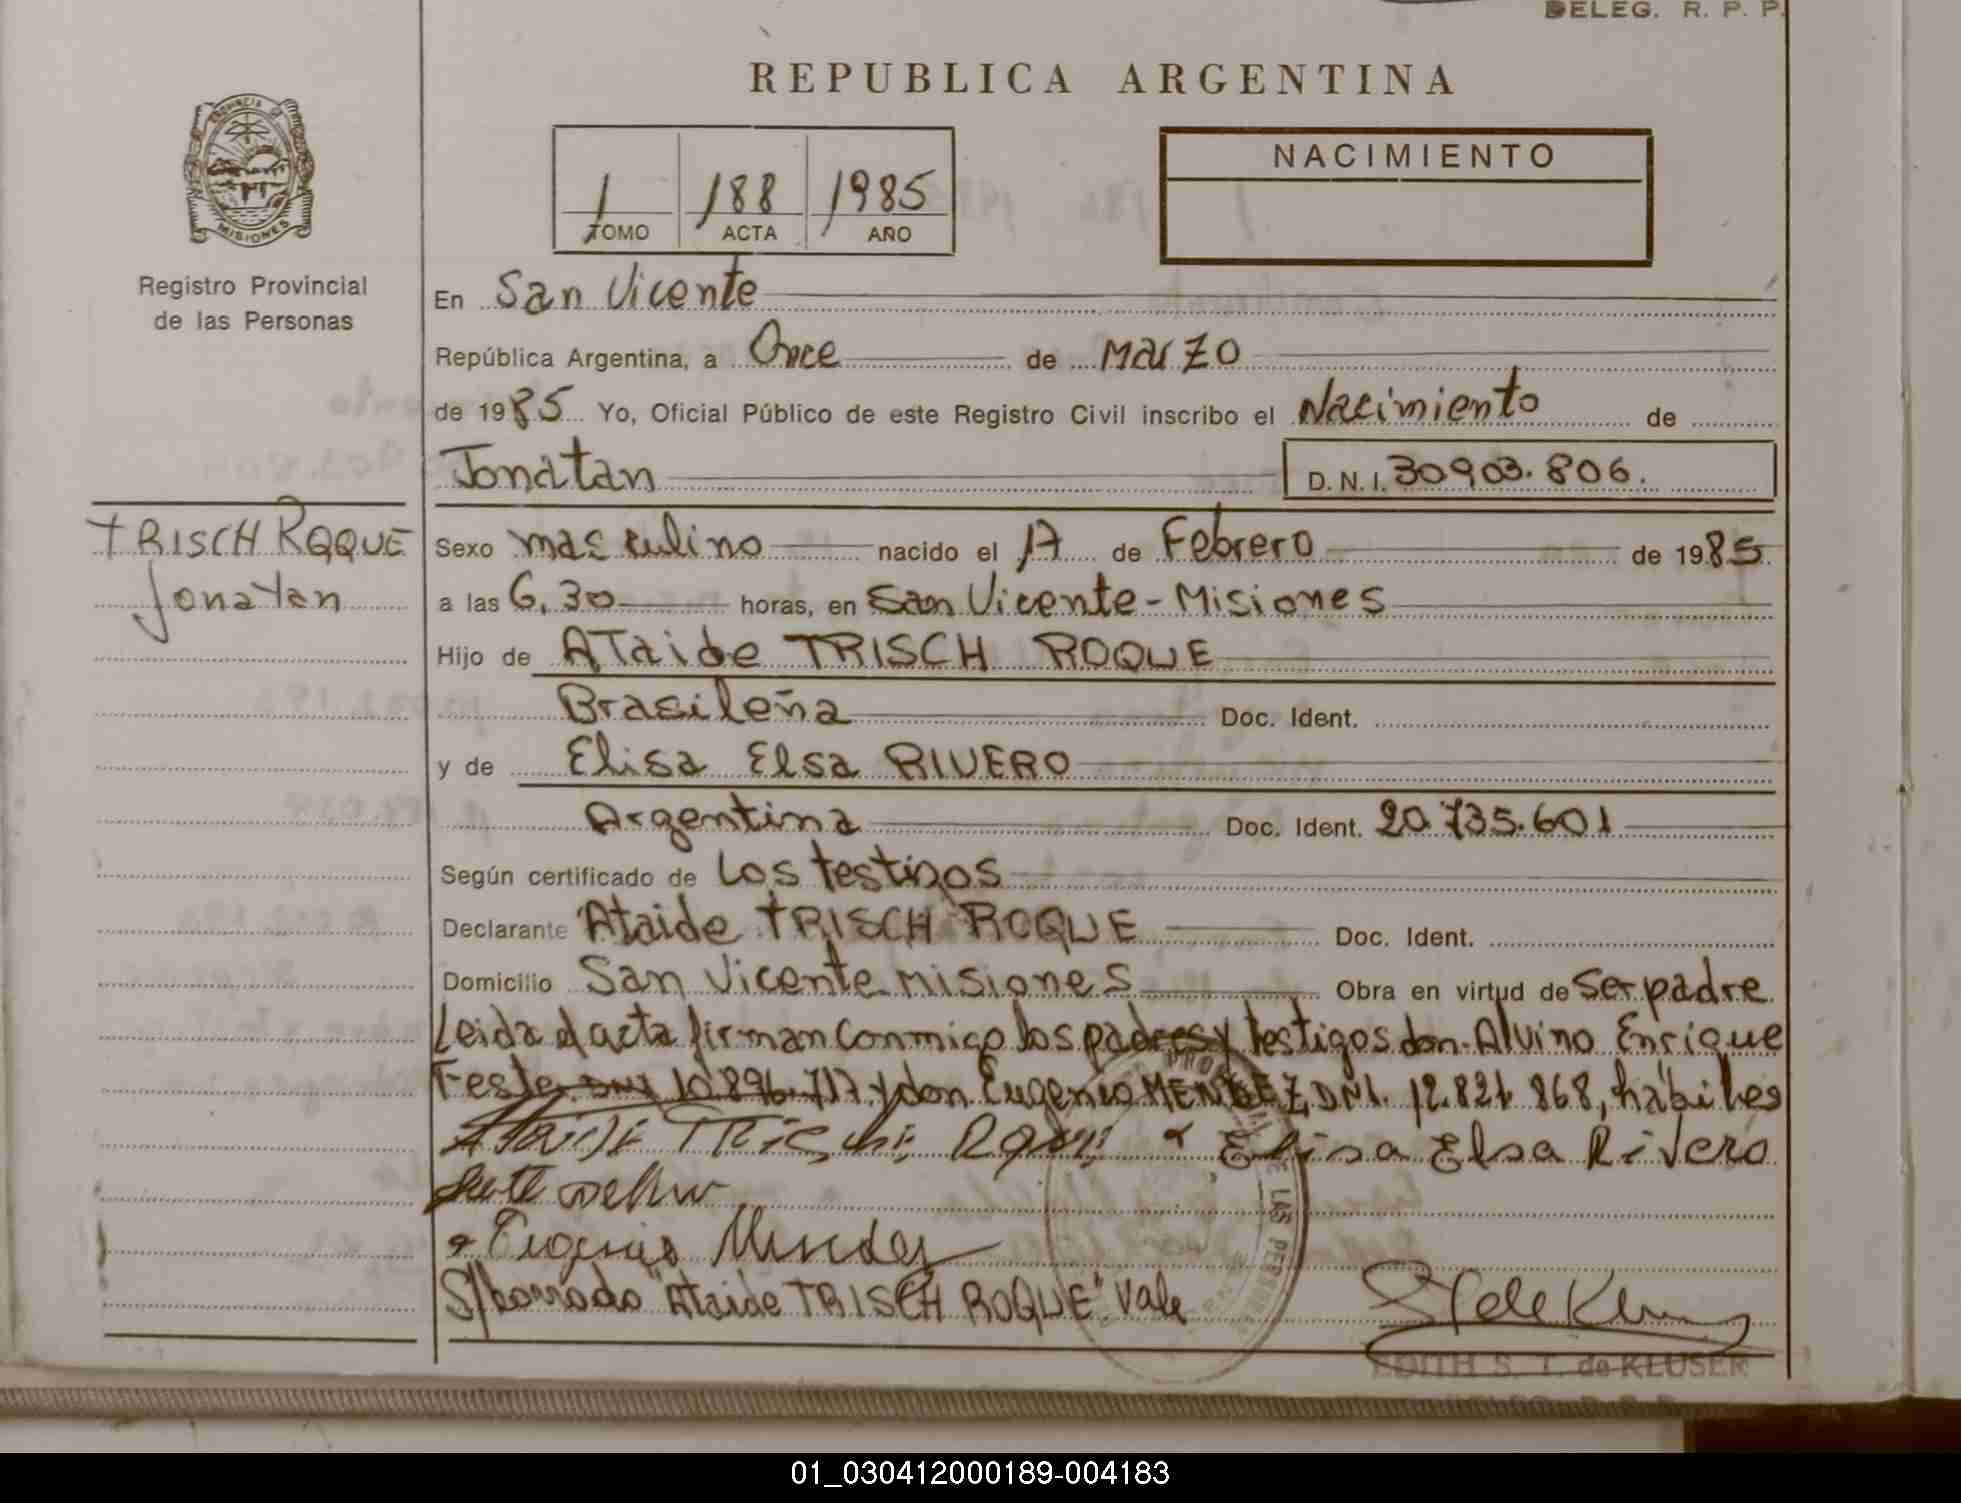 DELEG. R. P. P.
REPUBLICA ARGENTINA
PROVINCIA
MISIONES
Registro Provincial
de las Personas
1 188 1985
TOMO ACTA AÑO
NACIMIENTO
En San Vicente
República Argentina, a Once de Marzo
de 1985 Yo, Oficial Público de este Registro Civil inscribo el Nacimiento de
Jonatan D.N.I. 30903.806.
TRISCH ROQUE
Jonatan
Sexo masculino nacido el 17 de Febrero de 1985
a las 6,30 horas, en San Vicente - Misiones
Hijo de ATaide TRISCH ROQUE
Brasileña Doc. Ident.
y de Elisa Elsa RIVERO
Argentina Doc. Ident. 20.735.601
Según certificado de Los testigos
Declarante Ataide TRISCH ROQUE Doc. Ident.
Domicilio San Vicente Misiones Obra en virtud de Ser padre
Leida el acta firman conmigo los padres y testigos don Alvino Enrique
Feste DNI 10.896.717 y don Eugenio MENDEZ, DNI. 12.821 868, hábiles
Ataide Trisch Roque Elisa Elsa Rivero
Eugenio Mendez
S/borrado "Ataide TRISCH ROQUE" Vale
LAS PERSONAS
EDITH S. T. de KLUSER
01_030412000189-004183